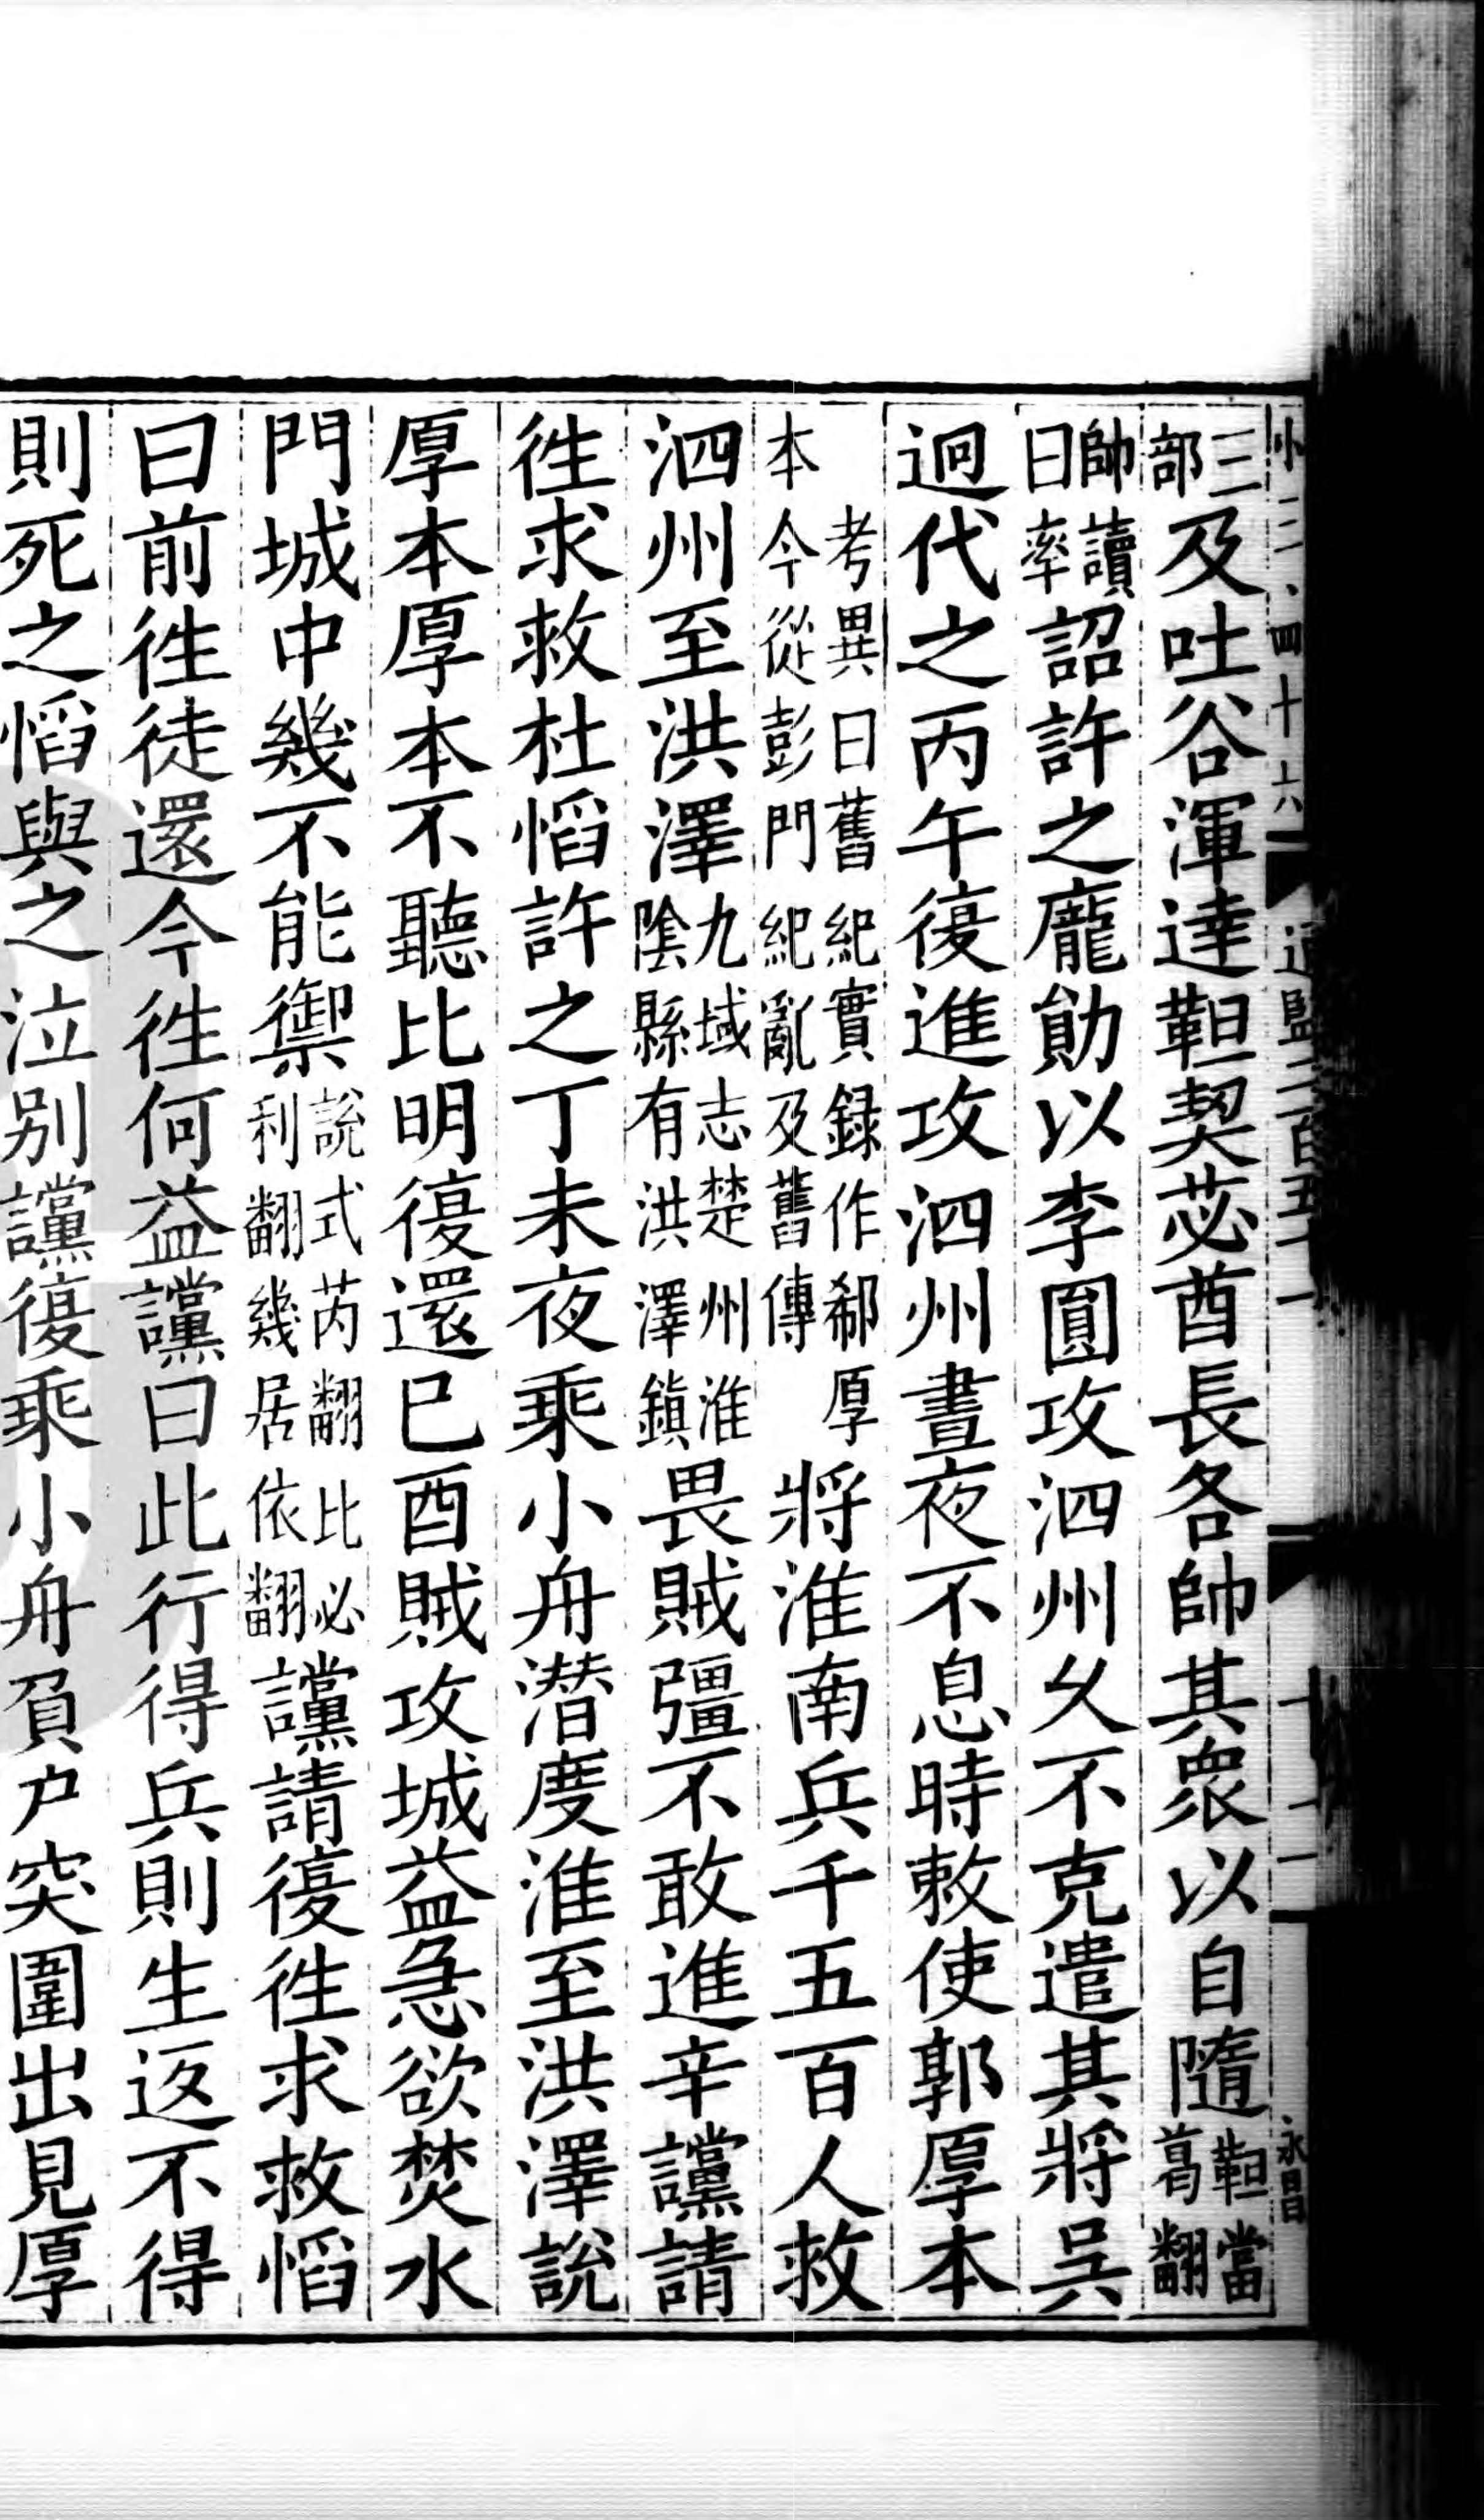 小二、四十六 通監二百五十一 十二
三部及吐谷渾達靼契苾酋長各帥其衆以自隨靼當葛翻
帥讀曰率詔許之龐勛以李圓攻泗州久不克遣其將吳
迥代之丙午復進攻泗州晝夜不息時敕使郭厚本
考異曰舊紀實録作郗厚本今從彭門紀亂及舊傳將淮南兵千五百人救
泗州至洪澤九域志楚州淮隂縣有洪澤鎮畏賊彊不敢進辛讜請
徃求救杜慆許之丁未夜乘小舟潜度淮至洪澤說
厚本厚本不聽比明復還已酉賊攻城益急欲焚水
門城中幾不能禦說式芮翻比必利翻幾居依翻讜請復徃求救慆
曰前徃徒還今徃何益讜曰此行得兵則生返不得
則死之慆與之泣别讜復乘小舟負户突圍出見厚